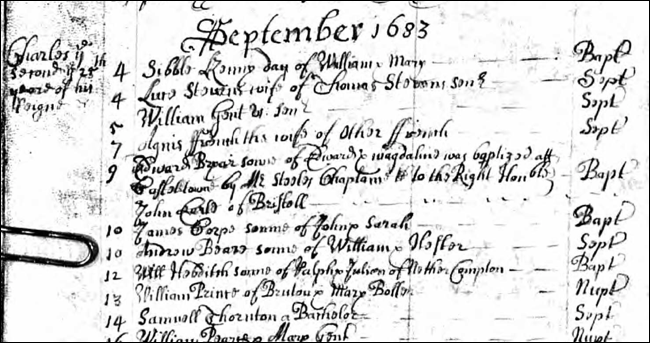 September 1683
Charles ye
Second ye 25th
yeare of his
Reigne
4 Sibble Kenny day of William & Mary Bapt
4 Luce Stevens wife of Thomas Stevens senr Sept
William Gent senr Sept
5
7 Agnis ffrench the wife of Other ffrench Sept
9 Edward Bryar sonne of Edward & Magdaline was baptized att
by Mr Chaplaine to the Right Honble Bapt
John Earle of Bristoll
10 James Corpe sonne of John & Sarah Bapt
10 Andrew Beare sonne of William & Hester Sept
12 Will Hebditch sonne of Ralph & Julion of Nether Compton Bapt
13 William Prince of Bruton & Mary Nupt
14 Samuell Thornton a Bachelor Sept
16 William & Mary Gent Nupt